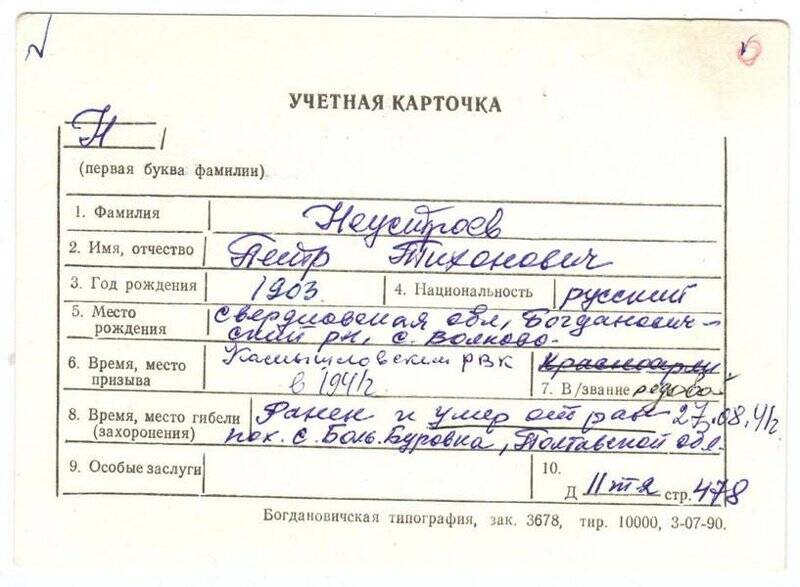 УЧЕТНАЯ КАРТОЧКА
Н
(первая буква фамилии)
1. Фамилия Неустроев
2. Имя, отчество Петр Тихонович
3. Год рождения 1903 4. Национальность русский
5. Место рождения Свердловская обл, Богданович-
ский рн, с. Волково.
6. Время, место призыва Камышловским РВК
в 1941г
Красноарм.
7. В/звание рядовой
8. Время, место гибели (захоронения) Ранен и умер от ран 27.08.41г
пох. с. Боль. Буровка, Полтавской обл.
9. Особые заслуги
10.
Д 11 т 2 стр. 478
Богдановичская типография, зак. 3678, тир. 10000, 3-07-90.